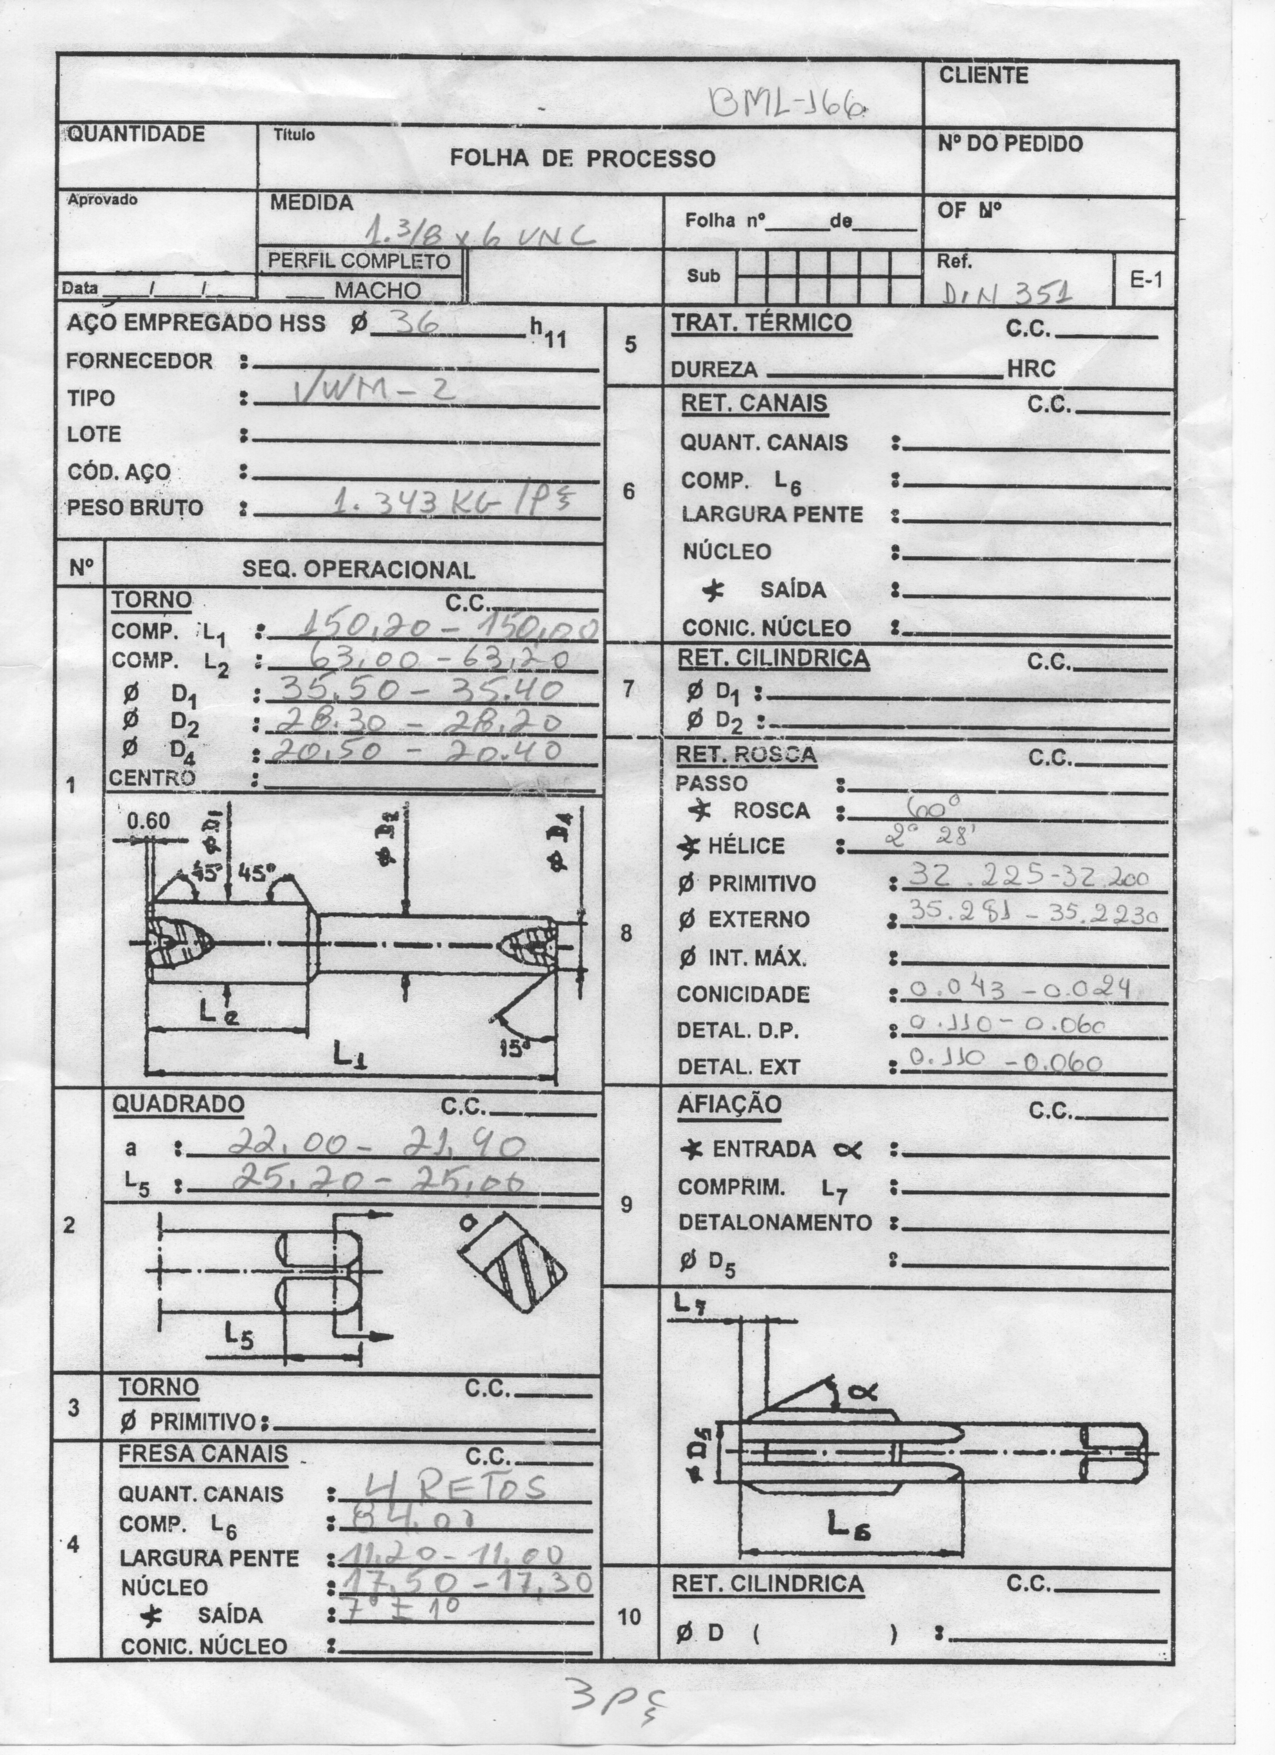 BML-166
CLIENTE
QUANTIDADE
Título
FOLHA DE PROCESSO
Nº DO PEDIDO
Aprovado
MEDIDA
1.3/8 x 6 UNC
Folha nº______de______
OF Nº
PERFIL COMPLETO
Sub
Ref.
DIN 351
E-1
Data ____/____/____
____ MACHO
AÇO EMPREGADO HSS Ø 36 h11
FORNECEDOR :
TIPO : VWM-2
LOTE :
CÓD. AÇO :
PESO BRUTO : 1.343 KG/PÇ
Nº
SEQ. OPERACIONAL
1
TORNO C.C.
COMP. L1 : 150,20 - 150,00
COMP. L2 : 63,00 - 63,20
Ø D1 : 35.50 - 35.40
Ø D2 : 28.30 - 28.20
Ø D4 : 20.50 - 20.40
CENTRO :
0.60
Ø D1
Ø D2
Ø D4
45° 45°
L2
15°
L1
2
QUADRADO C.C.
a : 22,00 - 21,90
L5 : 25,20 - 25,00
a
L5
3
TORNO C.C.
Ø PRIMITIVO :
4
FRESA CANAIS C.C.
QUANT. CANAIS : 4 RETOS
COMP. L6 : 84.00
LARGURA PENTE : 11,20 - 11,00
NÚCLEO : 17,50 - 17,30
SAÍDA : 7° ± 1°
CONIC. NÚCLEO :
5
TRAT. TÉRMICO C.C.
DUREZA ______ HRC
6
RET. CANAIS C.C.
QUANT. CANAIS :
COMP. L6 :
LARGURA PENTE :
NÚCLEO :
SAÍDA :
CONIC. NÚCLEO :
7
RET. CILINDRICA C.C.
Ø D1 :
Ø D2 :
8
RET. ROSCA C.C.
PASSO :
ROSCA : 60°
HÉLICE : 2° 28'
Ø PRIMITIVO : 32.225-32.200
Ø EXTERNO : 35.281 - 35.2230
Ø INT. MÁX. :
CONICIDADE : 0.043 - 0.024
DETAL. D.P. : 0.110 - 0.060
DETAL. EXT : 0.110 - 0.060
9
AFIAÇÃO C.C.
ENTRADA α :
COMPRIM. L7 :
DETALONAMENTO :
Ø D5 :
L7
α
Ø D5
L6
10
RET. CILINDRICA C.C.
Ø D ( ) :
3 PÇ